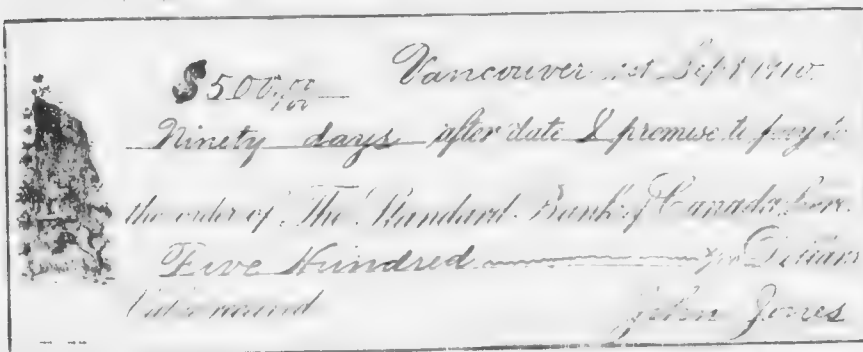 $500 00/100 Vancouver 1st Sept 1910
Ninety days after date I promise to pay to
the order of The Standard Bank of Canada here
Five Hundred /100 Dollars
Value received
John Jones